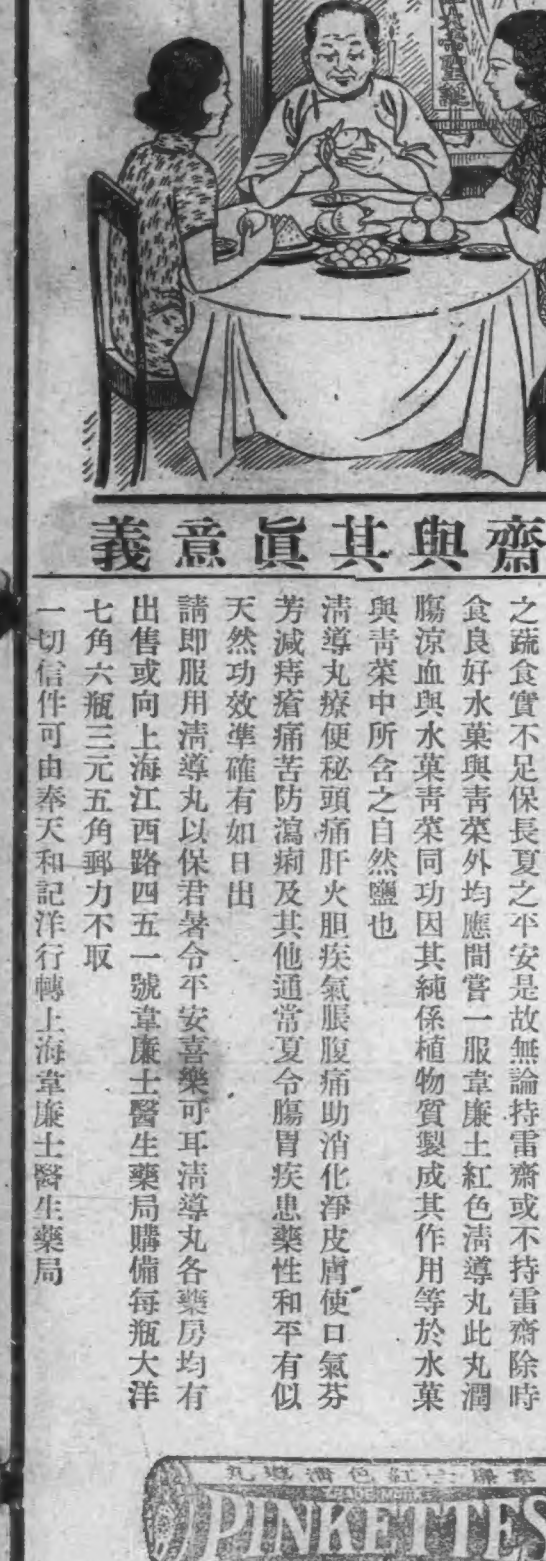 齋與其眞意義
之蔬食實不足保長夏之平安是故無論持雷齋或不持雷齋除時
食良好水菓與靑菜外均應間嘗一服韋廉士紅色淸導丸此丸潤
腸涼血與水菓靑菜同功因其純係植物質製成其作用等於水菓
與靑菜中所含之自然鹽也
淸導丸療便秘頭痛肝火胆疾氣脹腹痛助消化淨皮膚使口氣芬
芳減痔瘡痛苦防瀉痢及其他通常夏令腸胃疾患藥性和平有似
天然功效準確有如日出
請即服用淸導丸以保君暑令平安喜樂可耳淸導丸各藥房均有
出售或向上海江西路四五一號韋廉士醫生藥局購備每瓶大洋
七角六瓶三元五角郵力不取
一切信件可由奉天和記洋行轉上海韋廉士醫生藥局
韋廉士紅色淸導丸
TRADE MARK
PINKETTES